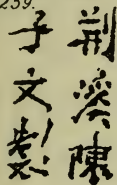 239.
荆溪陳
子文製